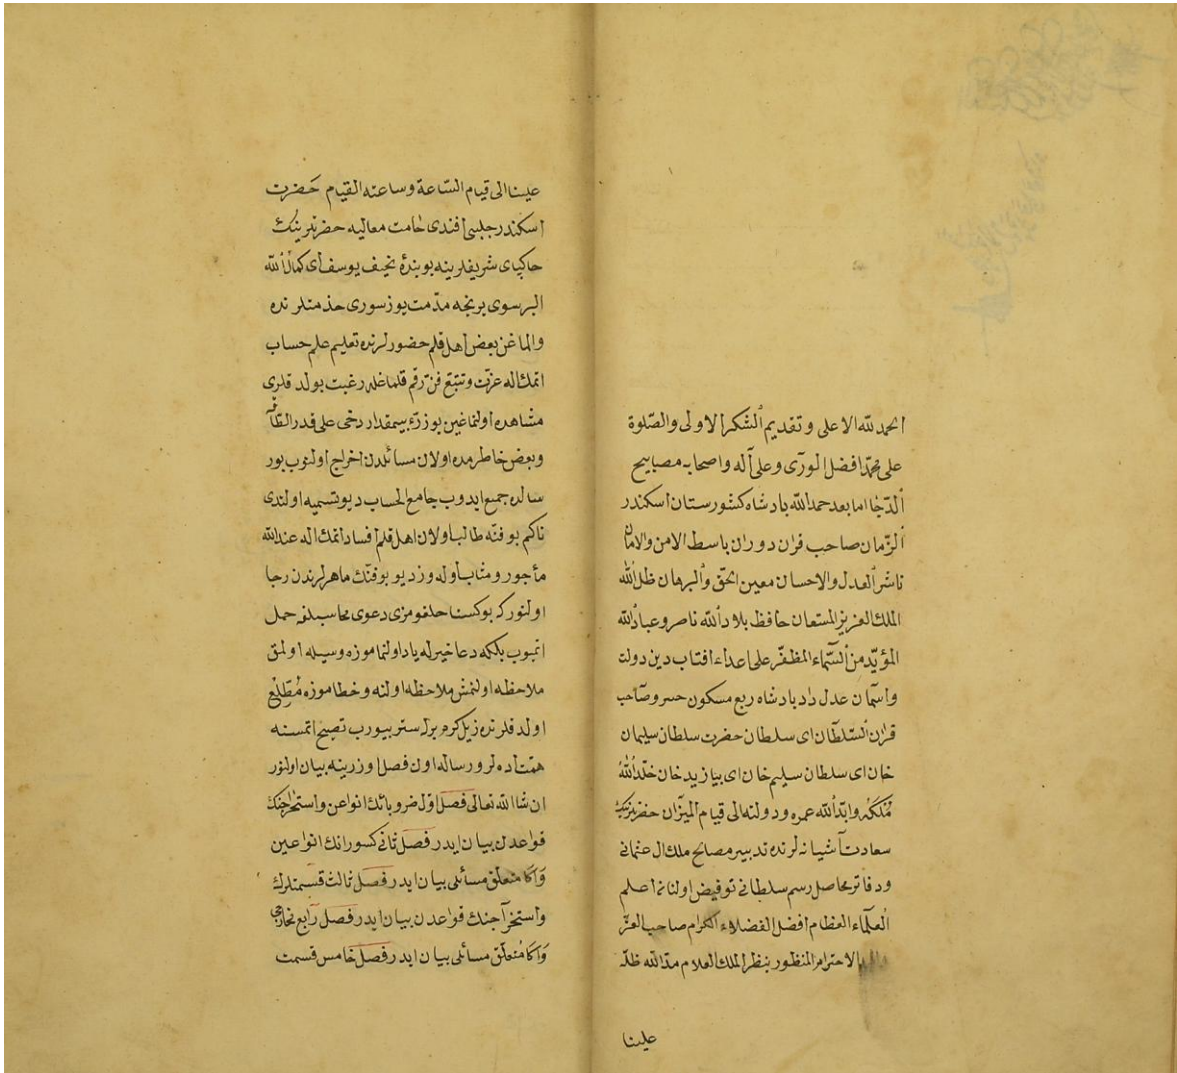 الحمد لله الاعلى و تقديم الشكر الاولى والصلوة
على محمد افضل الورى وعلى آله واصحابه مصابيح
الدجا اما بعد حمد الله بادشاه كشورستان اسكندر
الزمان صاحب قران دوران باسط الامن والامان
ناشر العدل والاحسان معين الحق والبرهان ظل الله
الملك العزيز المستعان حافظ بلاد الله ناصر وعباد الله
المؤيد من السماء المظفر على اعداء افتاب دين دولت
واسمان عدل داد بادشاه ربع مسكون خسرو صاحب
قران السلطان اى سلطان حضرت سلطان سليمان
خان اى سلطان سليم خان اى بيازيد خان خلد الله
ملكه وابد الله عمره ودولته الى قيام الميزان حضرتلرينك
سعادت آشيانه لرنده تدبير مصالح ملك ال عثمانى
ودفاتر محاصل رسم سلطانى توفيض اولنان اعلم
العلماء العظام افضل الفضلاء الكرام صاحب العز
الاحترام المنظور بنظر الملك العلام مد الله ظله
علينا
علينا الى قيام الساعة وساعته القيام حضرت
اسكندر جلبى افندى دامت معاليه حضرتلرينك
خاكپاى شريفلرينه بو بندۀ نحيف يوسف اى كمال الله
البرسوى بر نجه مدت يوز سورى خدمتلرنده
والماغن بعض اهل قلم حضورلرنده تعليم علم حساب
اتمك اله عزت وتتبع فن رقم قلماغله رغبت بولدقلرى
مشاهده اولنماغين بو ذرۀ بيمقدار دخى على قدر الطاقه
وبعض خاطرمده اولان مسائلدن اخراج اولنوب بور
ساله جميع ايدوب جامع الحساب ديو تسميه اولندى
تاكم بو فنه طالب اولان اهل قلم افساد اتمك اله عند الله
مأجور ومثاب اوله وز ديو بو فنك ماهرلرندن رجا
اولنور كه بو كسنا حلقومزى دعوى محاسبلغه حمل
اتميوب بلكه دعا خيرله ياد اولنماموزه وسيله اولمق
ملاحظه اولنمش ملاحظه اولنه وخطاموزه مطلع
اولدقلرنده ذيل كرم برله ستر بيورب تصحيح اتمسنه
همت اده لر ورساله اون فصل اوزرينه بيان اولنور
ان شا الله تعالى فصل اول ضروباتك انواعن واستخراجنك
قواعدن بيان ايدر فصل ثانى كسوراتك انواعين
واكا متعلق مسائلى بيان ايدر فصل ثالث قسمتلرك
واستخراجنك قواعدن بيان ايدر فصل رابع
واكا متعلق مسائلى بيان ايدر فصل خامس قسمت